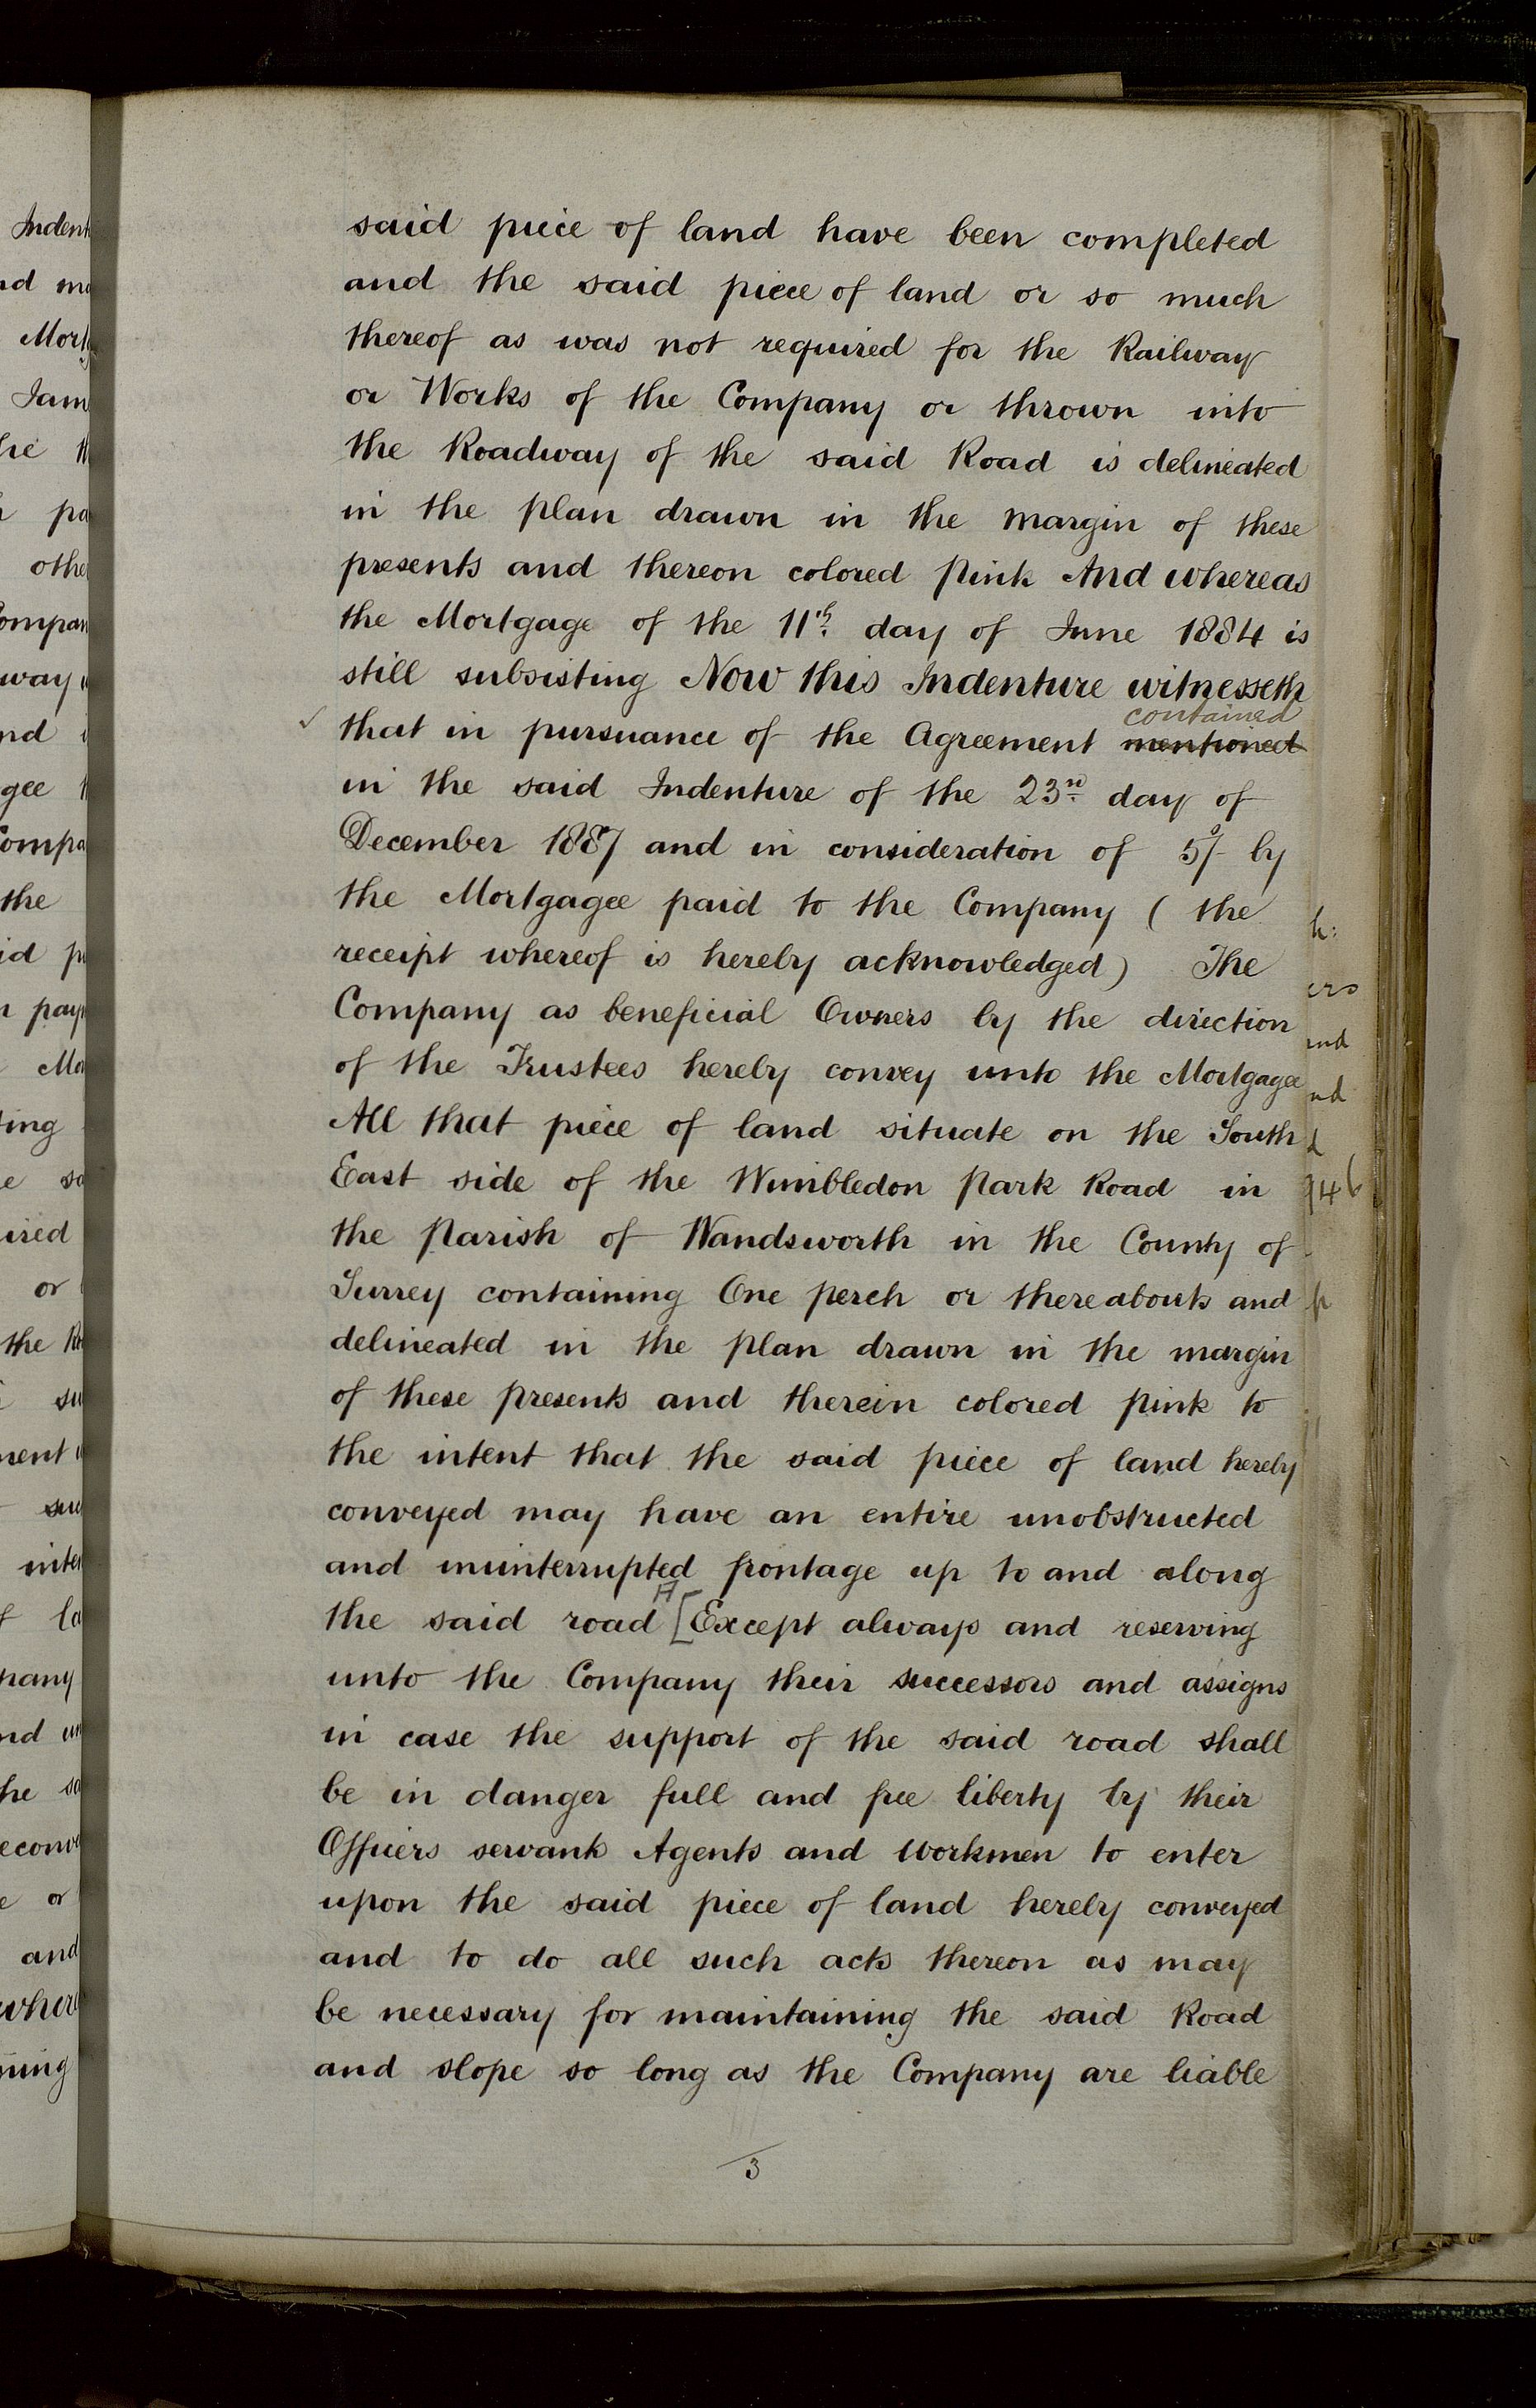 said piece of land have been completed
and the said piece of land or so much
thereof as was not required for the Railway
or Works of the Company or thrown into
the Roadway of the said Road is delineated
in the plan drawn in the margin of these
presents and thereon colored pink And whereas
the Mortgage of the 11th. day of June 1884 is
still subsisting Now this Indenture witnesseth
contained
that in pursuance of the Agreement mentioned
in the said Indenture of the 23rd. day of
December 1887 and in consideration of 5/- by
the Mortgagee paid to the Company ( the
receipt whereof is hereby acknowledged) The
Company as beneficial Owners by the direction
of the Trustees hereby convey unto the Mortgagee
All that piece of land situate on the South
East side of the Wimbledon Park Road in
the Parish of Wandsworth in the County of
Surrey containing One perch or thereabouts and
delineated in the plan drawn in the margin
of these presents and therein colored pink to
the intent that the said piece of land hereby
conveyed may have an entire unobstructed
and uninterrupted frontage up to and along
the said road [Except always and reserving
unto the Company their successors and assigns
in case the support of the said road shall
be in danger full and free liberty by their
Officers servants Agents and Workmen to enter
upon the said piece of land hereby conveyed
and to do all such acts thereon as may
be necessary for maintaining the said Road
and slope so long as the Company are liable
3